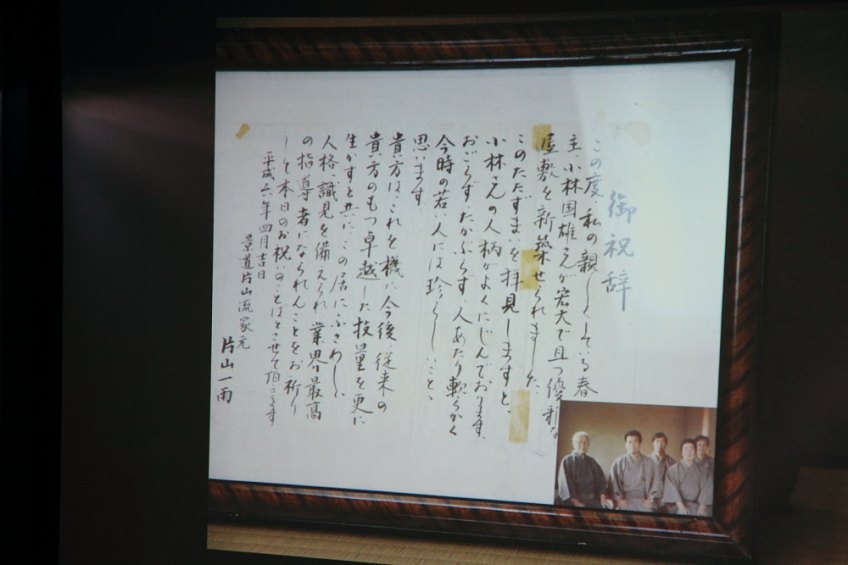 御祝辞
この度、私の親しくしている春
主、小林国雄さんが宏大で且つ優雅な
屋敷を新築せられました。
このたたずまいを拝見しますと、
小林さんの人柄がよくにじんでおります。
おごらず、たかぶらず、人あたり軟らかく
今時の若い人には珍らしいことゝ
思います。
貴方は、これを機に今後、従来の
貴方のもつ卓越した技量を更に
生かすと共に、この居にふさわしい
人格、識見を備えられ、業界最高
の指導者になられんことをお祈り
して本日のお祝いのことばとさせて頂きます
平成六年四月吉日
景道片山流家元
片山一雨